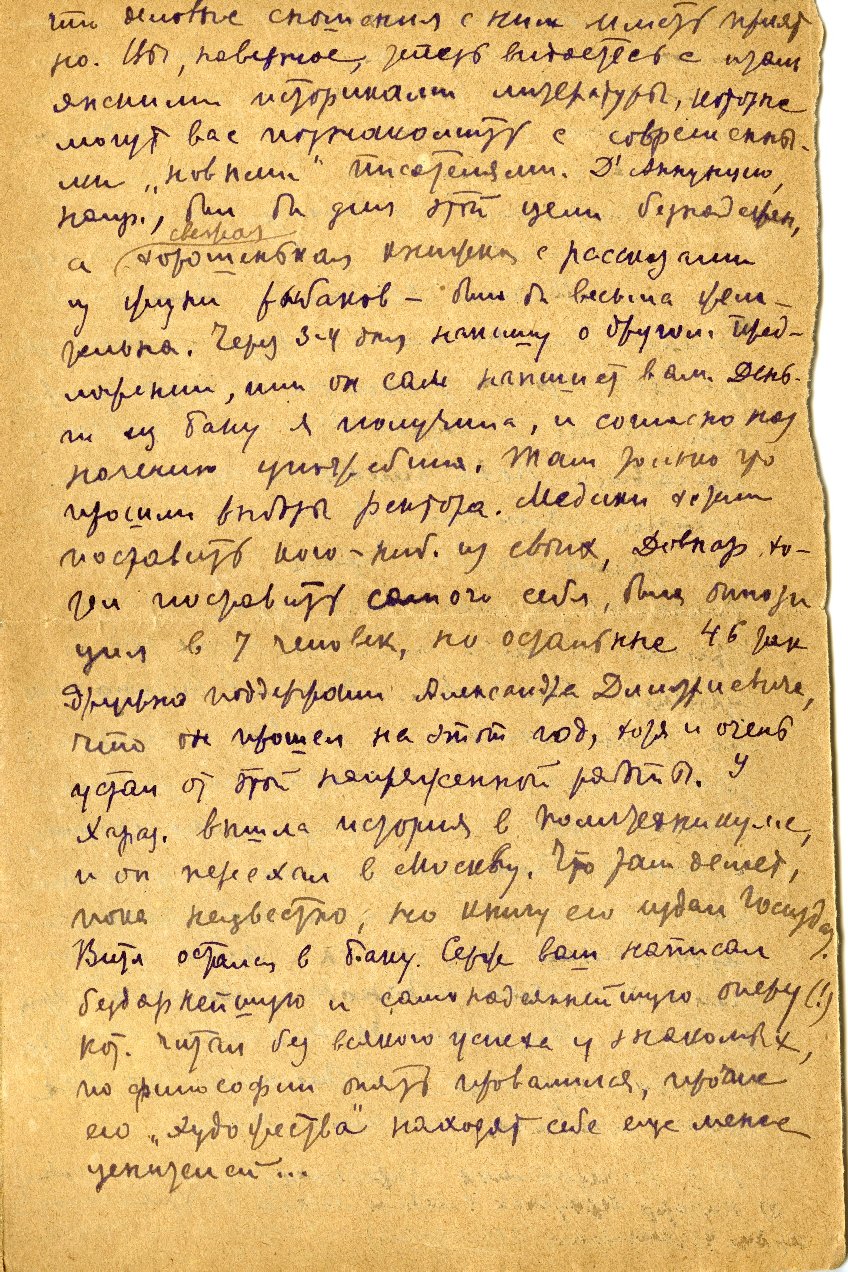 что деловые сношения с ним иметь прият
но. Вы, наверное, теперь видаетесь с итали
янскими историками литературы, которые
могут вас познакомить с современны-
ми „новыми" писателями. Д'Аннунцио,
напр., был бы для этой цели безнадежен,
свежая
а хорошенькая книжка с рассказами
из жизни рыбаков – была бы весьма жела-
тельна. Через 3-4 дня напишу о другом пред-
ложении, или он сам напишет вам. День-
ги из Баку я получила, и согласно наз
начению употребила. Там только что
прошли выборы ректора. Медики хотели
поставить кого-ниб. из своих, Довнар хо-
тел поставить самого себя, была оппози
ция в 7 человек, но остальные 46 так
дружно поддержали Александра Дмитриевича,
что он прошел на этот год, хотя и очень
устал от этой напряженной работы. У
Хараз. вышла история в Политехникуме,
и он переехал в Москву. Что там делает,
пока неизвестно, но книгу его издал Госиздат.
Витя остался в Баку. Сережа ваш написал
бездарнейшую и самонадеяннейшую оперу (!)
кот. читал без всякого успеха у знакомых,
по философии опять провалился, прочие
его „художества" находят себе еще менее
ценителей...